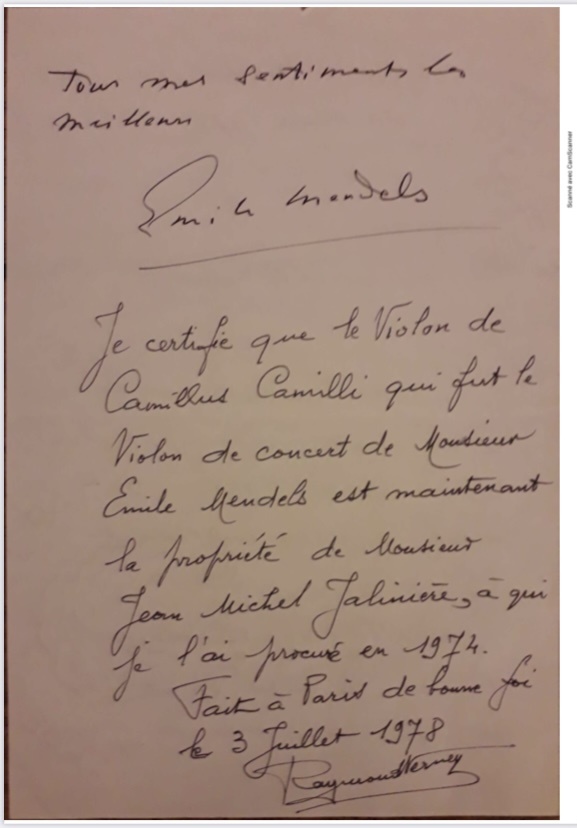 Tous mes sentiments les
meilleurs
Emile Mendels
Je certifie que le Violon de
Camillus Camilli qui fut le
Violon de concert de Monsieur
Emile Mendels est maintenant
la propriété de Monsieur
Jean Michel Jalinière, à qui
je l'ai procuré en 1974.
Fait à Paris de bonne foi
le 3 Juillet 1978
Raymond
Scanné avec CamScanner